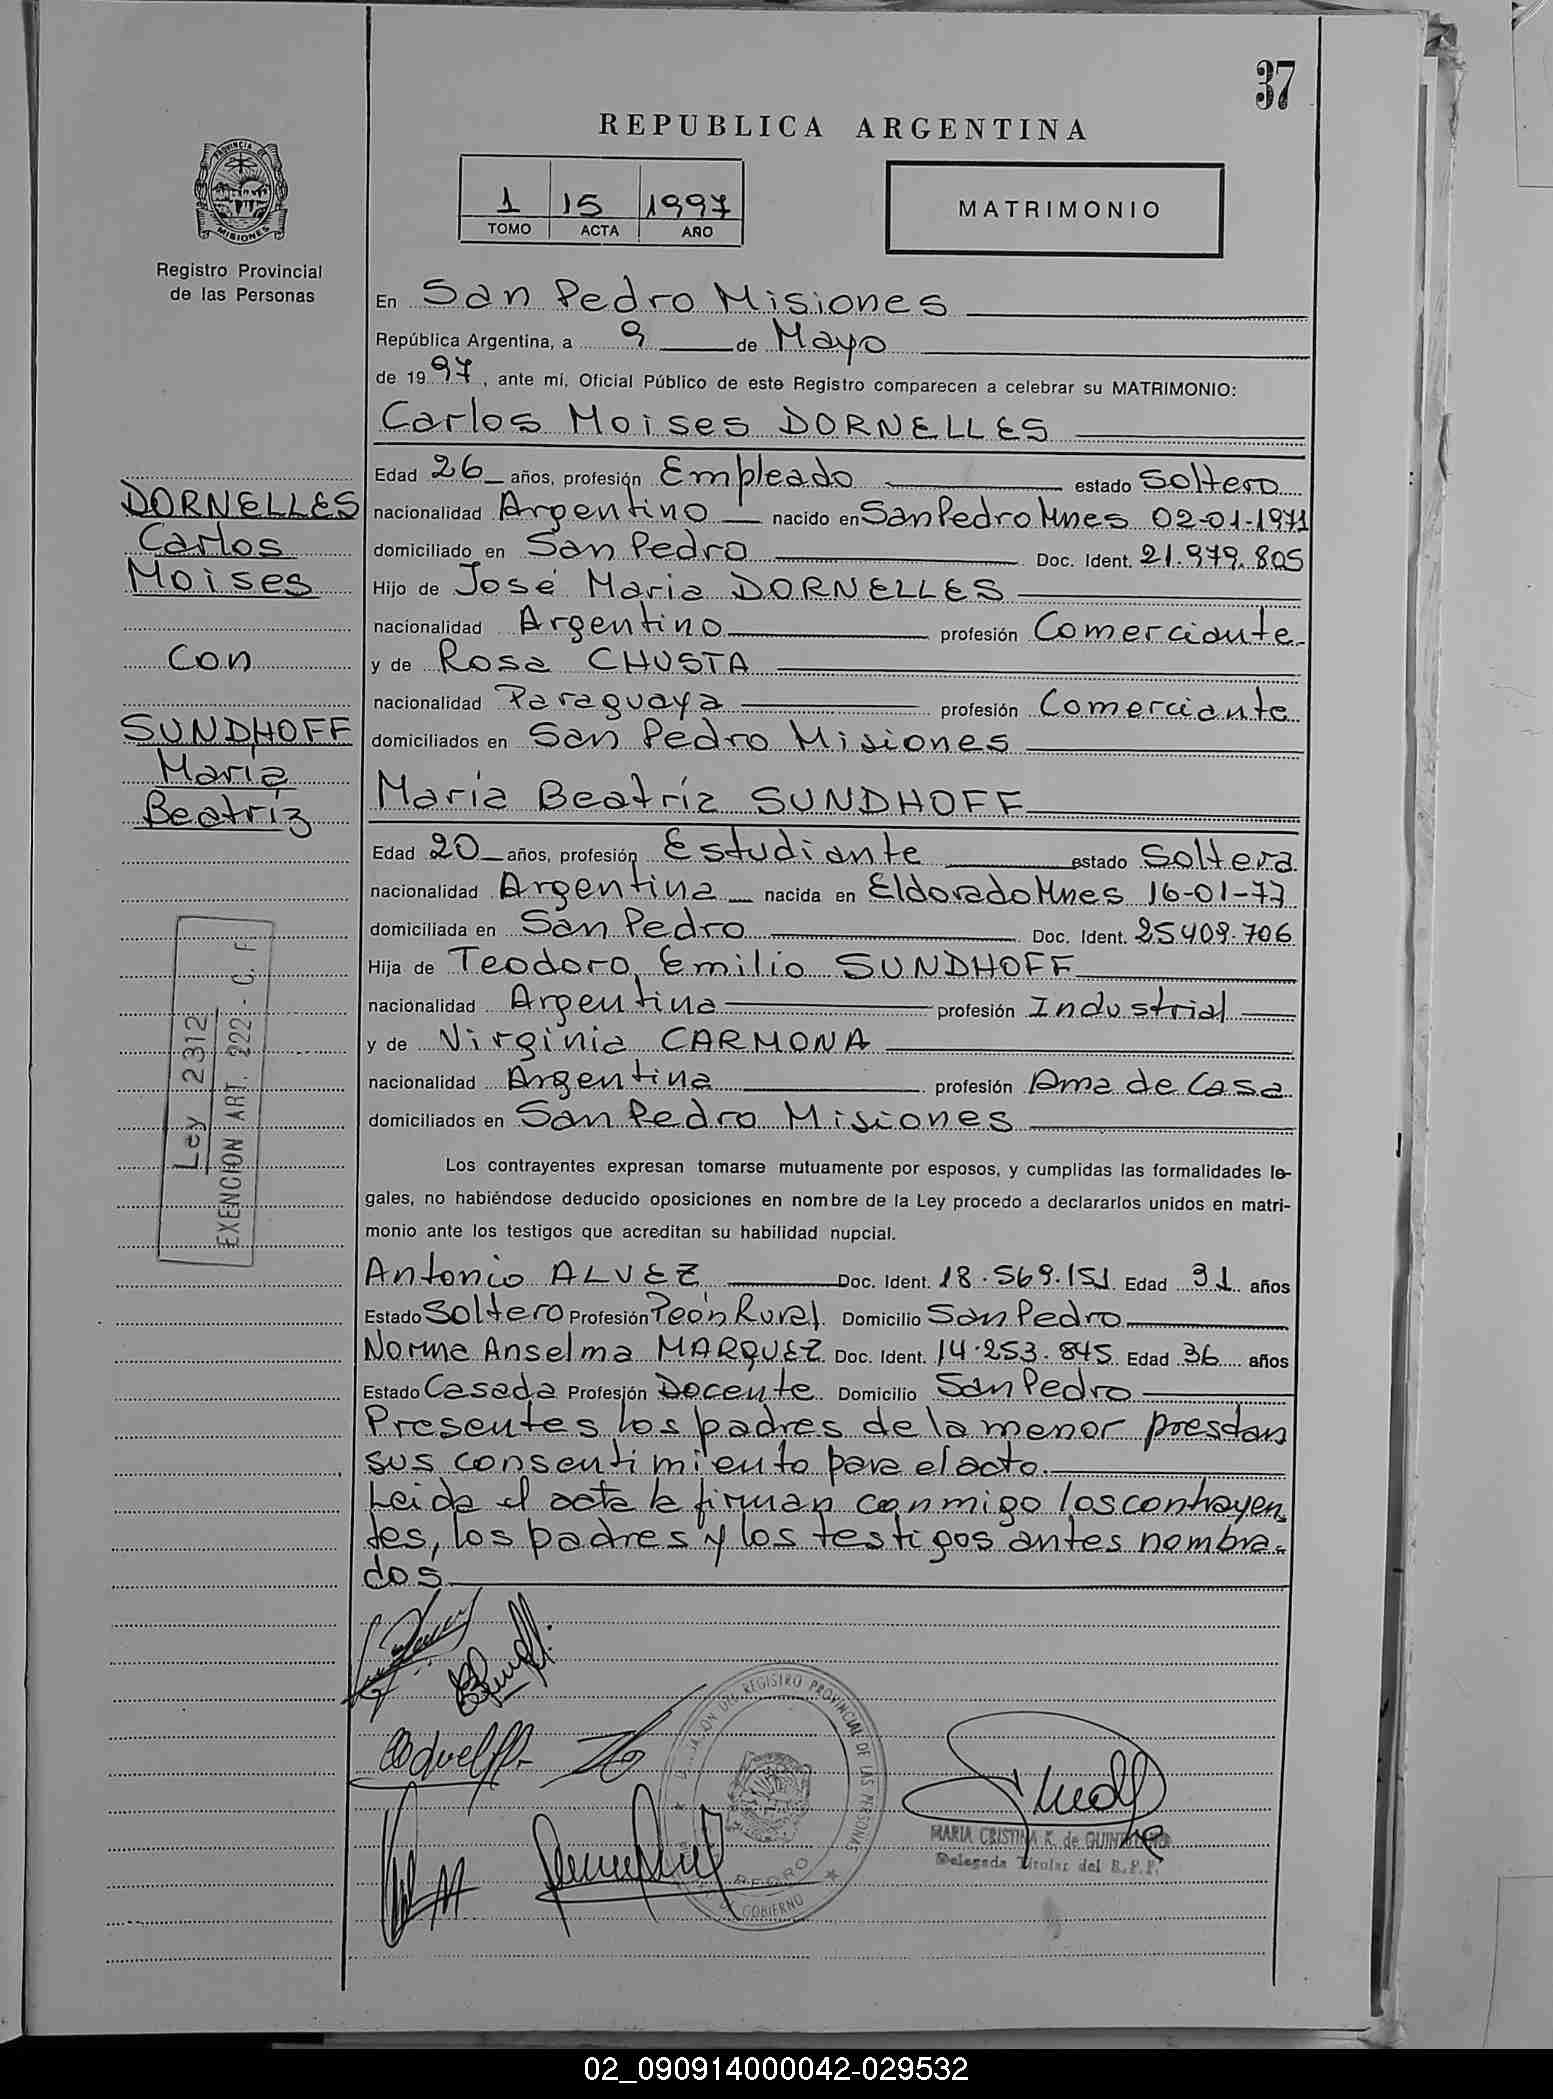 37
REPUBLICA ARGENTINA
1 15 1997
TOMO ACTA AÑO
MATRIMONIO
PROVINCIA DE
MISIONES
Registro Provincial
de las Personas
En San Pedro Misiones
República Argentina, a 9 de Mayo
de 1997, ante mí, Oficial Público de este Registro comparecen a celebrar su MATRIMONIO:
Carlos Moises DORNELLES
Edad 26 años, profesión Empleado estado Soltero
nacionalidad Argentino nacido en San Pedro Mnes 02-01-1971
domiciliado en San Pedro Doc. Ident. 21.979.805
Hijo de José Maria DORNELLES
nacionalidad Argentino profesión Comerciante
y de Rosa CHUSTA
nacionalidad Paraguaya profesión Comerciante
domiciliados en San Pedro Misiones
María Beatríz SUNDHOFF
Edad 20 años, profesión Estudiante estado Soltera
nacionalidad Argentina nacida en Eldorado Mnes 16-01-77
domiciliada en San Pedro Doc. Ident. 25409.706
Hija de Teodoro Emilio SUNDHOFF
nacionalidad Argentina profesión Industrial
y de Virginia CARMONA
nacionalidad Argentina profesión Ama de Casa
domiciliados en San Pedro Misiones
Los contrayentes expresan tomarse mutuamente por esposos, y cumplidas las formalidades le-
gales, no habiéndose deducido oposiciones en nombre de la Ley procedo a declararlos unidos en matri-
monio ante los testigos que acreditan su habilidad nupcial.
Antonio ALVEZ Doc. Ident. 18.569.151 Edad 31 años
Estado Soltero Profesión Peón Rural Domicilio San Pedro
Norma Anselma MARQUEZ Doc. Ident. 14.253.845 Edad 36 años
Estado Casada Profesión Docente Domicilio San Pedro
Presentes los padres de la menor prestan
sus consentimiento para el acto.
Leida el acta la firman conmigo los contrayen
tes, los padres y los testigos antes nombra-
dos
DORNELLES
Carlos
Moises
Con
SUNDHOFF
María
Beatríz
Ley 2312
EXENCION ART. 222 - C. F.
DEL REGISTRO PROVINCIAL DE LAS PERSONAS
PEDRO
GOBIERNO
MARIA CRISTINA K. de
Delegada Titular del R.P.P.
02_090914000042-029532